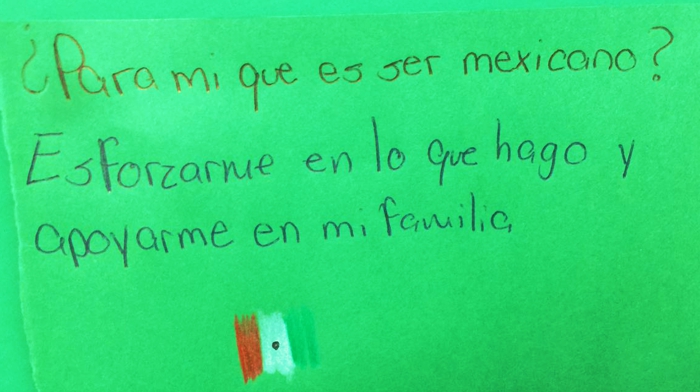 ¿Para mi que es ser mexicano?
Esforzarme en lo que hago y
apoyarme en mi familia